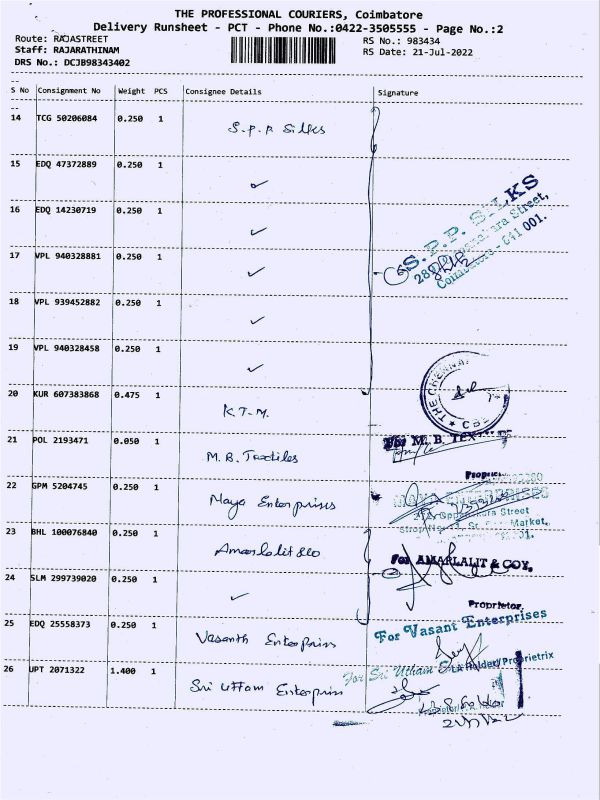 THE PROFESSIONAL COURIERS, Coimbatore
Delivery Runsheet - PCT - Phone No.:0422-3505555 - Page No.:2
Route: RAJASTREET
RS No.: 983434
Staff: RAJARATHINAM
RS Date: 21-Jul-2022
DRS No.: DCJB98343402
S No Consignment No Weight PCS Consignee Details Signature
14 TCG 50206084 0.250 1 S.P.P. Silks
15 EDQ 47372889 0.250 1 ✓
16 EDQ 14230719 0.250 1 ✓
S.P.P. SILKS
17 VPL 940328881 0.250 1 ✓
Coimbatore - 641 001.
18 VPL 939452882 0.250 1 ✓
19 VPL 940328458 0.250 1 ✓
20 KUR 607383868 0.475 1 K.T.M.
THE CHENNAI
CBE
21 POL 2193471 0.050 1 M.B. Textiles
For M. B. TEXT
22 GPM 5204745 0.250 1 Maya Enterprises
MAYA ENTERPRISES
Street
Market,
23 BHL 100076840 0.250 1 Amarlalit &co
For AMARLALIT & COY.
24 SLM 299739020 0.250 1 ✓
Proprietor
25 EDQ 25558373 0.250 1 Vasanth Enterprises
For Vasant Enterprises
26 UPT 2071322 1.400 1 Sri Uttam Enterprises
For Sri Uttam
Holder/Proprietrix